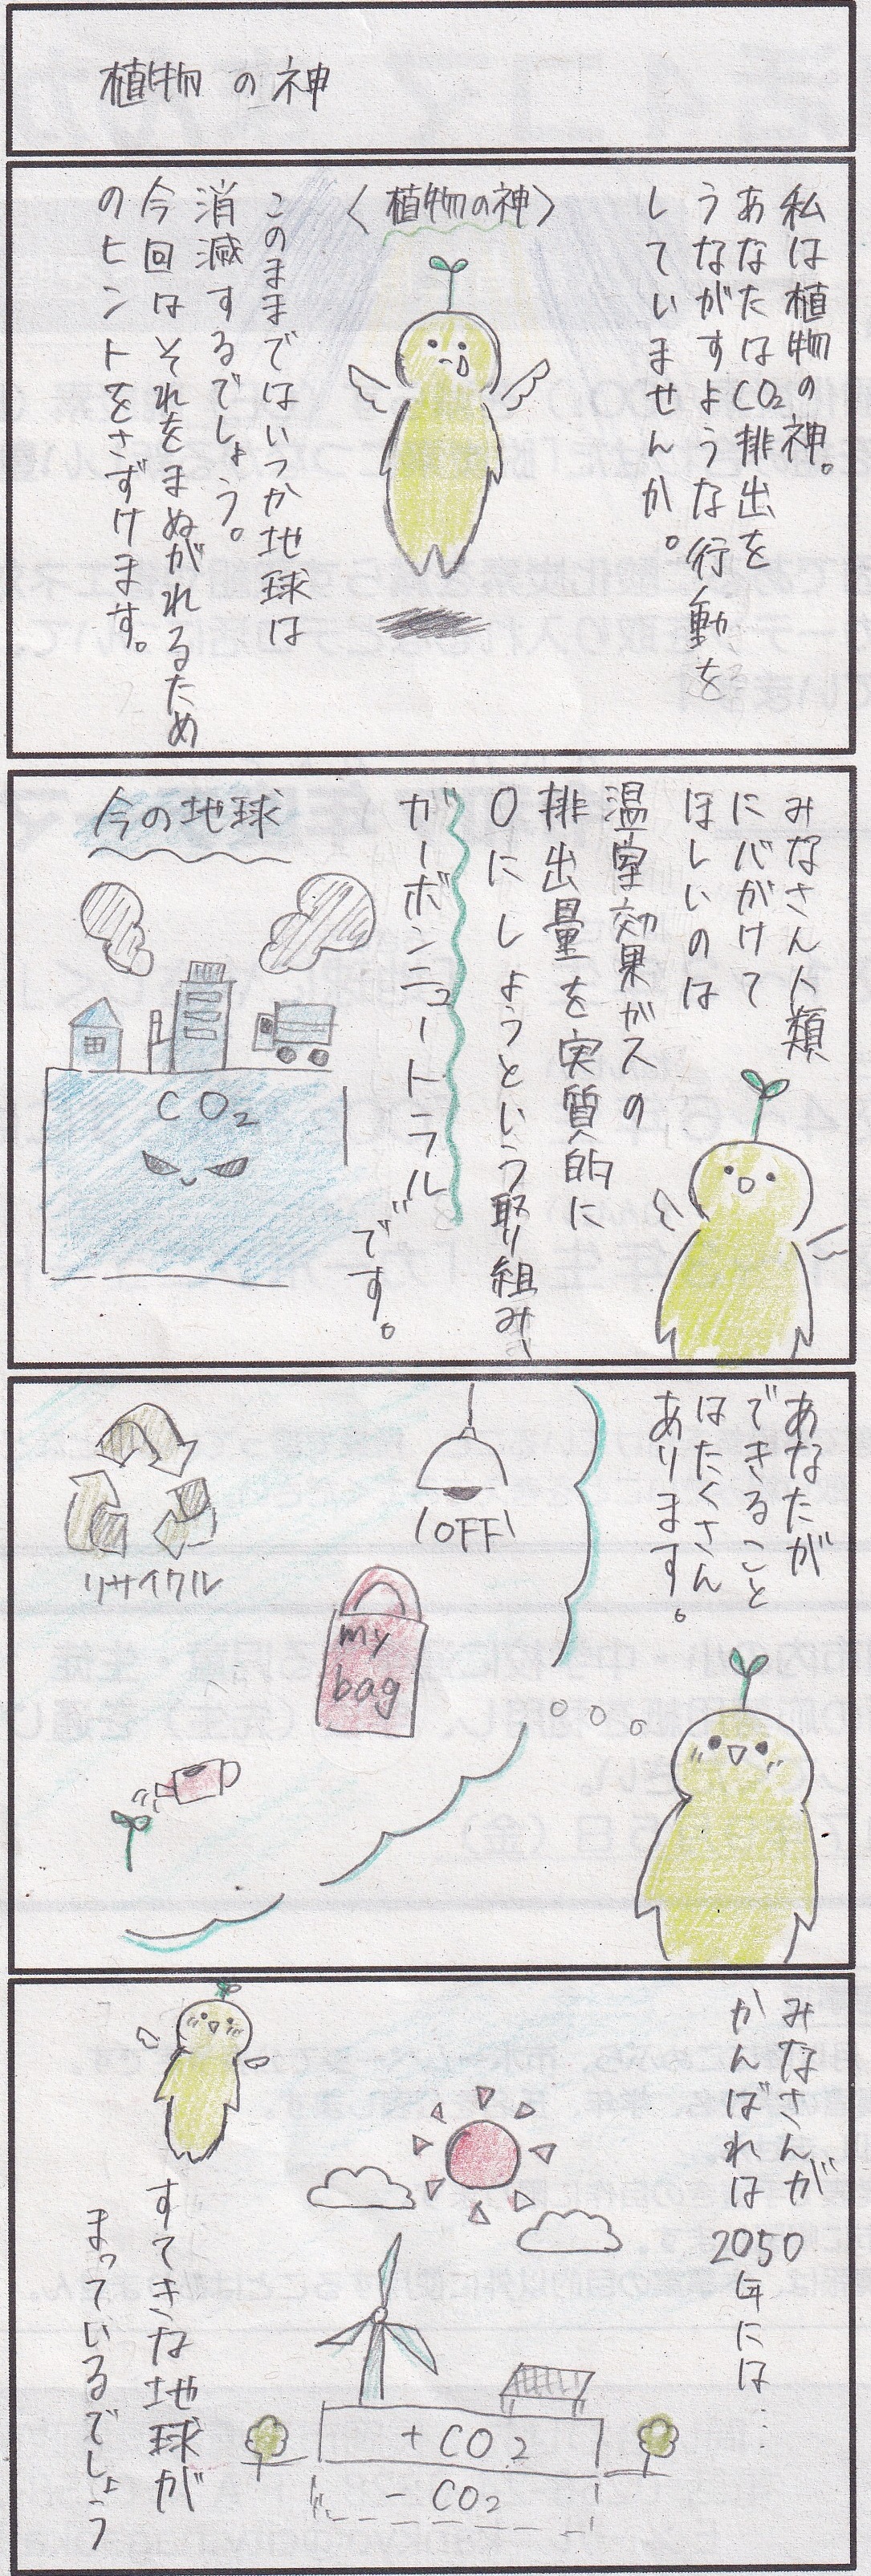 植物の神
私は植物の神。
あなたはCO₂排出を
うながすような行動を
していませんか。
〈植物の神〉
このままではいつか地球は
消滅するでしょう。
今回はそれをまぬがれるため
のヒントをさずけます。
みなさん人類
に心がけて
ほしいのは
温室効果ガスの
排出量を実質的に
0にしようという取り組み、
カーボンニュートラル
です。
今の地球
CO₂
あなたが
できること
はたくさん
あります。
OFF
my
bag
リサイクル
みなさんが
がんばれば
2050年には…
+CO₂
-CO₂
すてきな地球が
まっているでしょう